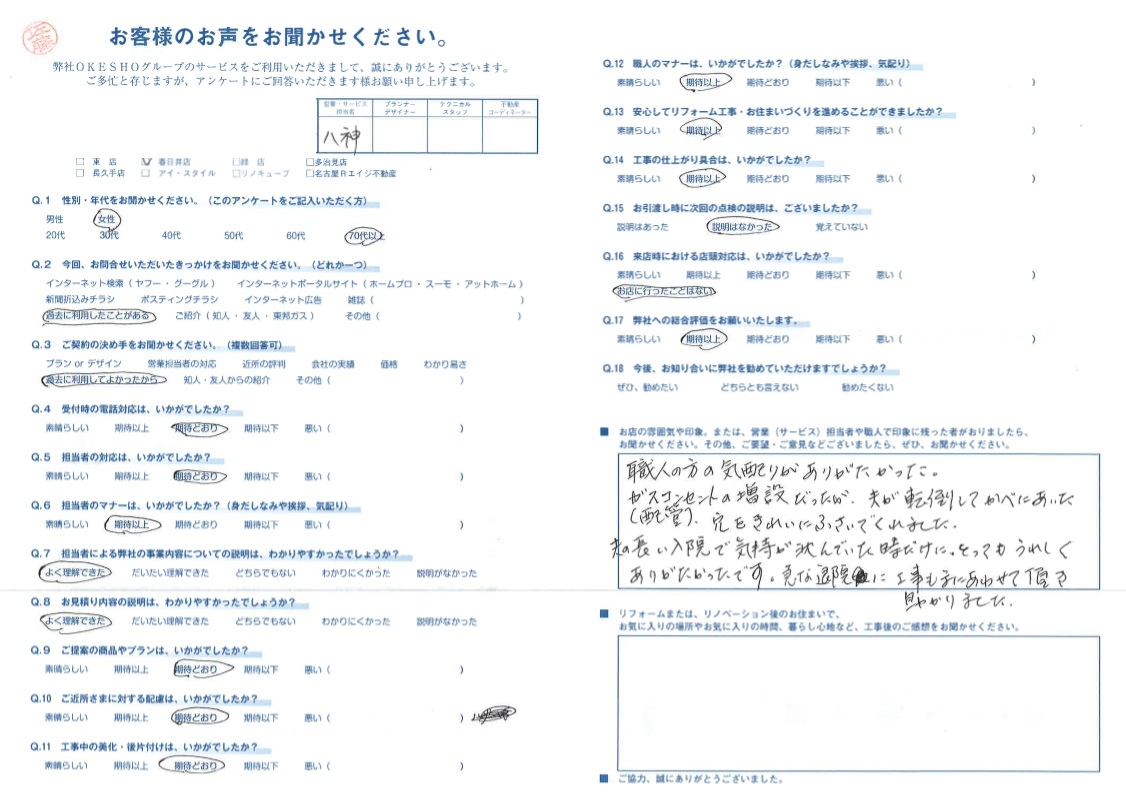 佐藤
お客様のお声をお聞かせください。
弊社OKESHOグループのサービスをご利用いただきまして、誠にありがとうございます。
ご多忙と存じますが、アンケートにご回答いただきます様お願い申し上げます。
営業・サービス担当者 プランナーデザイナー テクニカルスタッフ 不動産コーディネーター
八神
□ 東 店 ☑ 春日井店 □緑 店 □多治見店
□ 長久手店 □ アイ・スタイル □リノキューブ □名古屋Rエイジ不動産
Q.1 性別・年代をお聞かせください。(このアンケートをご記入いただく方)
男性 女性
20代 30代 40代 50代 60代 70代以上
Q.2 今回、お問合せいただいたきっかけをお聞かせください。(どれか一つ)
インターネット検索(ヤフー・グーグル) インターネットポータルサイト(ホームプロ・スーモ・アットホーム)
新聞折込みチラシ ポスティングチラシ インターネット広告 雑誌( )
過去に利用したことがある ご紹介(知人・友人・東邦ガス) その他( )
Q.3 ご契約の決め手をお聞かせください。(複数回答可)
プラン or デザイン 営業担当者の対応 近所の評判 会社の実績 価格 わかり易さ
過去に利用してよかったから 知人・友人からの紹介 その他( )
Q.4 受付時の電話対応は、いかがでしたか?
素晴らしい 期待以上 期待どおり 期待以下 悪い( )
Q.5 担当者の対応は、いかがでしたか?
素晴らしい 期待以上 期待どおり 期待以下 悪い( )
Q.6 担当者のマナーは、いかがでしたか?(身だしなみや挨拶、気配り)
素晴らしい 期待以上 期待どおり 期待以下 悪い( )
Q.7 担当者による弊社の事業内容についての説明は、わかりやすかったでしょうか?
よく理解できた だいたい理解できた どちらでもない わかりにくかった 説明がなかった
Q.8 お見積り内容の説明は、わかりやすかったでしょうか?
よく理解できた だいたい理解できた どちらでもない わかりにくかった 説明がなかった
Q.9 ご提案の商品やプランは、いかがでしたか?
素晴らしい 期待以上 期待どおり 期待以下 悪い( )
Q.10 ご近所さまに対する配慮は、いかがでしたか?
素晴らしい 期待以上 期待どおり 期待以下 悪い( )
Q.11 工事中の美化・後片付けは、いかがでしたか?
素晴らしい 期待以上 期待どおり 期待以下 悪い( )
Q.12 職人のマナーは、いかがでしたか?(身だしなみや挨拶、気配り)
素晴らしい 期待以上 期待どおり 期待以下 悪い( )
Q.13 安心してリフォーム工事・お住まいづくりを進めることができましたか?
素晴らしい 期待以上 期待どおり 期待以下 悪い( )
Q.14 工事の仕上がり具合は、いかがでしたか?
素晴らしい 期待以上 期待どおり 期待以下 悪い( )
Q.15 お引渡し時に次回の点検の説明は、ございましたか?
説明はあった 説明はなかった 覚えていない
Q.16 来店時における店頭対応は、いかがでしたか?
素晴らしい 期待以上 期待どおり 期待以下 悪い( )
お店に行ったことはない
Q.17 弊社への総合評価をお願いいたします。
素晴らしい 期待以上 期待どおり 期待以下 悪い( )
Q.18 今後、お知り合いに弊社を勧めていただけますでしょうか?
ぜひ、勧めたい どちらとも言えない 勧めたくない
■ お店の雰囲気や印象。または、営業(サービス)担当者や職人で印象に残った者がおりましたら、
お聞かせください。その他、ご要望・ご意見などございましたら、ぜひ、お聞かせください。
職人の方の気配りがありがたかった。
ガスコンセントの増設だったが、夫が転倒してかべにあいた
(配管)、穴をきれいにふさいでくれました。
夫の長い入院で気持が沈んでいた時だけに、とってもうれしく
ありがたかったです。急な退院に工事も まにあわせて頂き
助かりました。
■ リフォームまたは、リノベーション後のお住まいで、
お気に入りの場所やお気に入りの時間、暮らし心地など、工事後のご感想をお聞かせください。
■ ご協力、誠にありがとうございました。